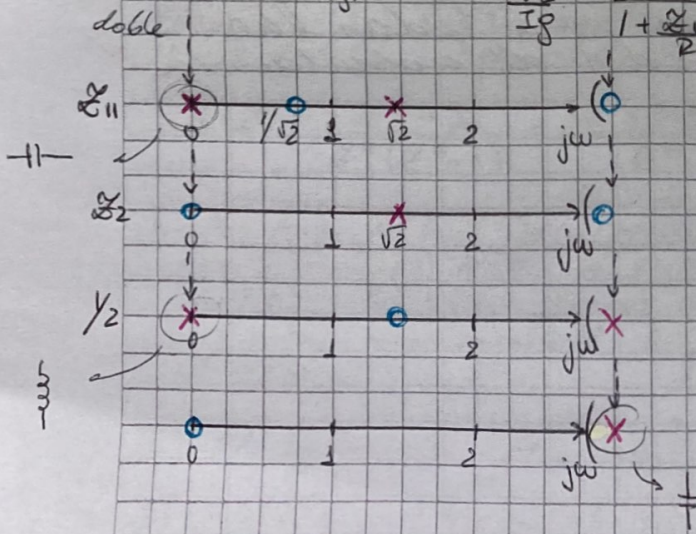 doble
Ig
1 + Z
Z₁₁
0 1/√2 1 √2 2 jω
Z₂
0 1 √2 2 jω
Y₂
0 1 2 jω
0 1 2 jω